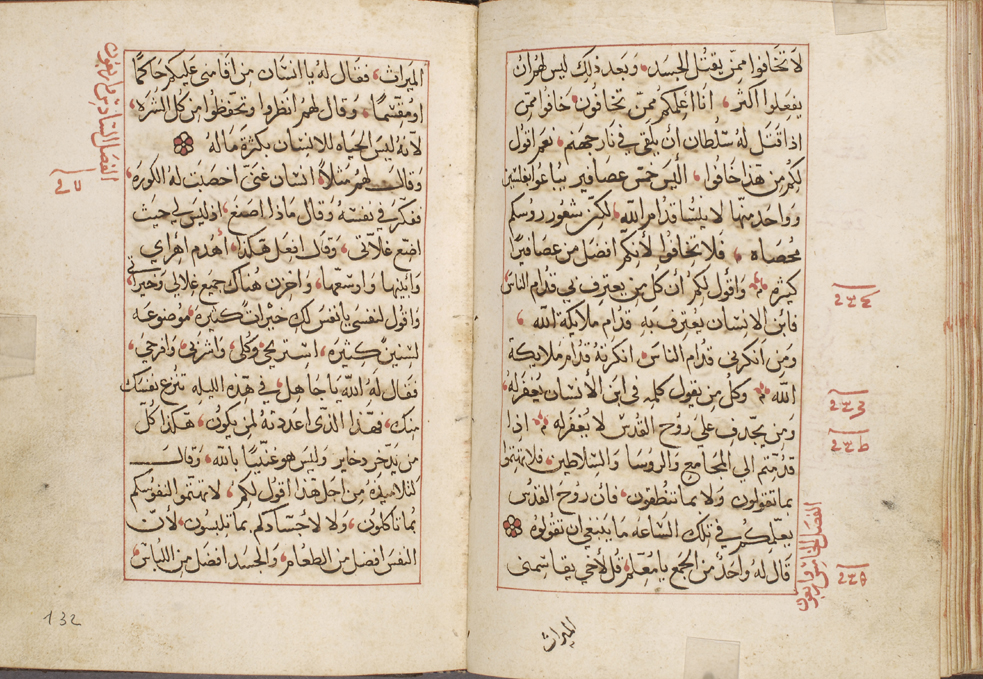 لا تخافوا ممن يقتل الجسد، وبعد ذلك ليس لهم ان
يفعلوا اكثر، انا اعلمكم ممن تخافون، خافوا ممن
اذا قتل له سلطان أن يلقي في نار جهنم، نعم اقول
لكم من هذا خافوا، أليس خمس عصافير يباعوا بفلسين
وواحد منها لا ينسا قدام الله، لكن شعور روسكم
محصاه، فلا تخافوا لأنكم افضل من عصافيرًا
كثيره، وأقول لكم أن كل من يعترف بي قدام الناس
فابن الانسان يعترف به قدام ملايكة الله،
ومن انكرني قدام الناس، انكرته قدام ملايكة
الله، وكل من يقول كلمه في ابن الأنسان يغفر له،
ومن يجدف علي روح القدس لا يغفر له، اذا
قدمتم الي المجامع والروسا والسلاطين، فلا تهتموا
بما تقولون ولا بما تنطقون، فان روح القدس
يعلمكم في تلك الساعه ما ينبغي ان تقولوه
قال له واحدٌ من الجمع يا معلم، قل لأخي يقاسمني
الميراث
الفصل الخامس واربعون
الميراث، فقال له يا انسان من اقامني عليكم حاكمًا
او مقسمًا، وقال لهم انظروا وتحفظوا من كل الشره،
لأنه ليس الحياه للانسان بكثرة ماله
وقال لهم مثلاً، انسان غنيّ اخصبت له الكوره،
ففكّر في نفسه وقال ماذا اصنع، اذ ليس لي حيث
اضع غلاتي، وقال افعل هكذا، أهدم أهراي
وابنيها واوسعها، واخزن هناك جميع غلالي وخيراتي
واقول لنفسي يا نفس لك خيرات كثيره، موضوعه
لسنين كثيره، استريحي، وكلي، واشربي، وافرحي،
فقال له الله يا جاهل، في هذه الليله تنزع نفسك
منك، فهذا الذي اعددته لمن يكون، هكذا كل
من يدخر دخاير وليس هو غنيًا بالله، وقال
لتلاميذه من اجل هذا اقول لكم، لا تهتموا لنفوسكم
بما تاكلون، ولا لأجسادكم بما تلبسون، لأن
النفس افضل من الطعام، والجسد افضل من اللباس،
الفصل السادس واربعون
132